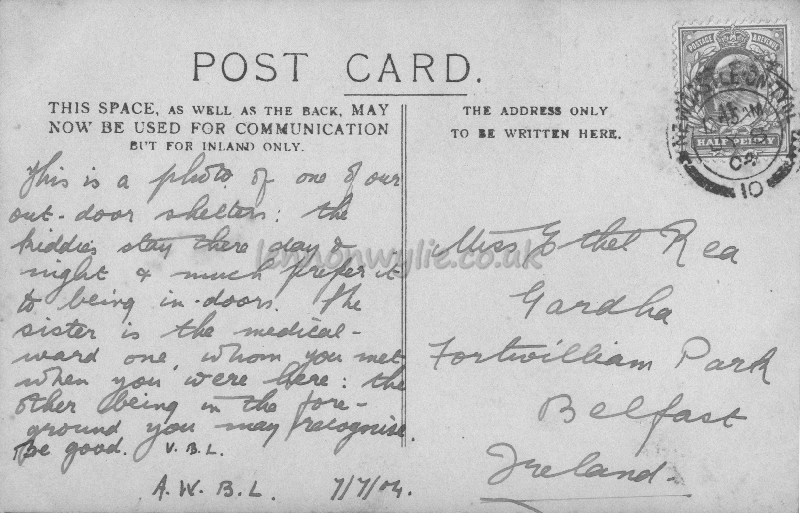 POST CARD.
THIS SPACE, AS WELL AS THE BACK, MAY
NOW BE USED FOR COMMUNICATION
BUT FOR INLAND ONLY.
THE ADDRESS ONLY
TO BE WRITTEN HERE.
POSTAGE & REVENUE
HALF PENNY
NEWCASTLE ON TYNE
04
10
This is a photo of one of our
out-door shelters: the
kiddies stay there day &
night & much prefer it
to being in-doors. The
sister is the medical-
ward one, whom you met
when you were here: the
other being in the fore-
ground you may recognise.
Be good. V.B.L.
A.W.B.L. 7/7/04.
Miss Ethel Rea
Gardha
Fortwilliam Park
Belfast
Ireland
lennonwylie.co.uk